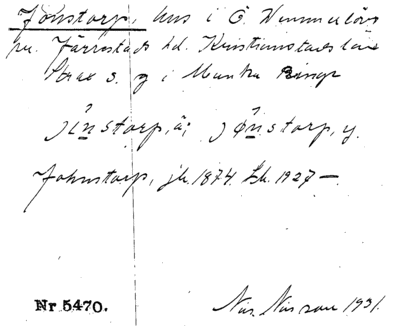 Jonstorp, hus i Ö. Vemmerlövs
sn. Järrestads hd. Kristianstads län
Strax s. g i Munka
jönstorp, ä; jønstorp, y.
Johnstorp, jb. 1874. Lk. 1927 —
Nr 5470. Nils Nilsson 1931.